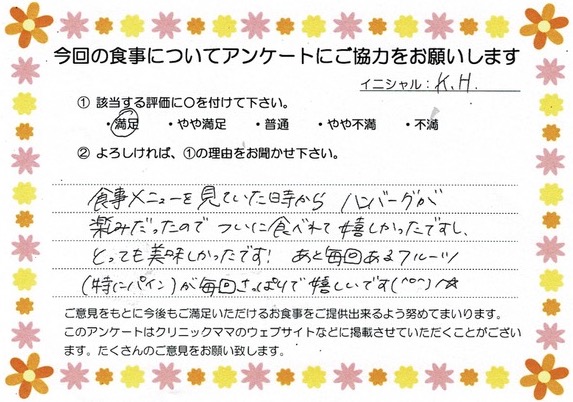 今回の食事についてアンケートにご協力をお願いします
イニシャル：K.H.
① 該当する評価に○を付けて下さい。
・満足 ・やや満足 ・普通 ・やや不満 ・不満
② よろしければ、①の理由をお聞かせ下さい。
食事メニューを見ていた時から ハンバーグが
楽みだったので ついに食べれて嬉しかったですし、
とっても美味しかったです! あと毎回あるフルーツ
(特にパイン)が毎回さっぱりで嬉しいです(^o^)☆
ご意見をもとに今後もご満足いただけるお食事をご提供出来るよう努めてまいります。
このアンケートはクリニックママのウェブサイトなどに掲載させていただくことがござい
ます。たくさんのご意見をお願い致します。